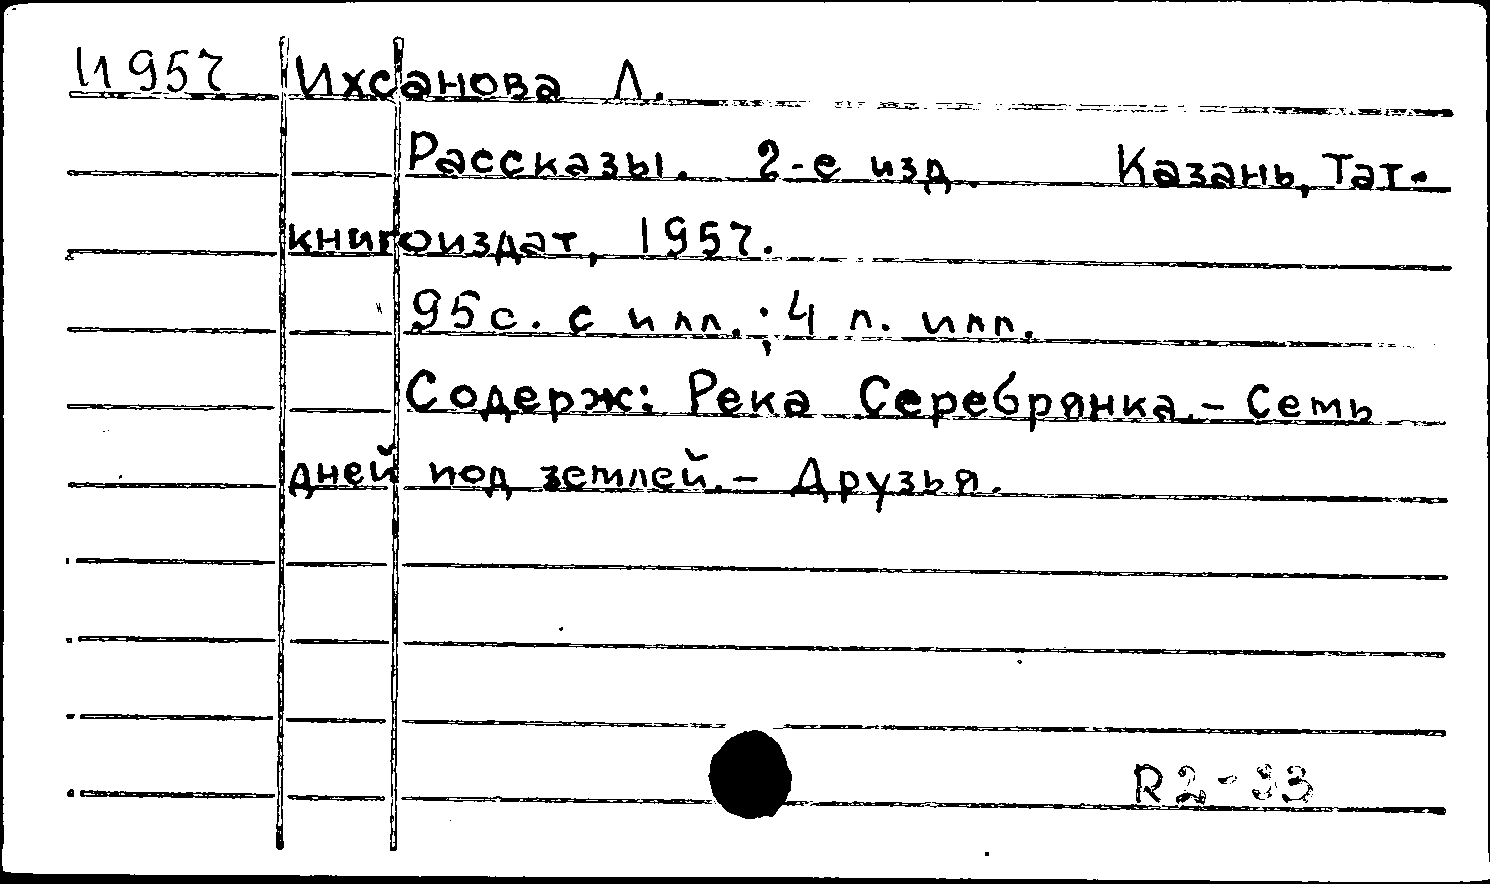 И957 Ихсанова Л.
Рассказы. 2-е изд. Казань, Тат-
книгоиздат, 1957.
95с. с илл.; 4 л. илл.
Содерж: Река Серебрянка.- Семь
дней под землей.- Друзья.
R2-33